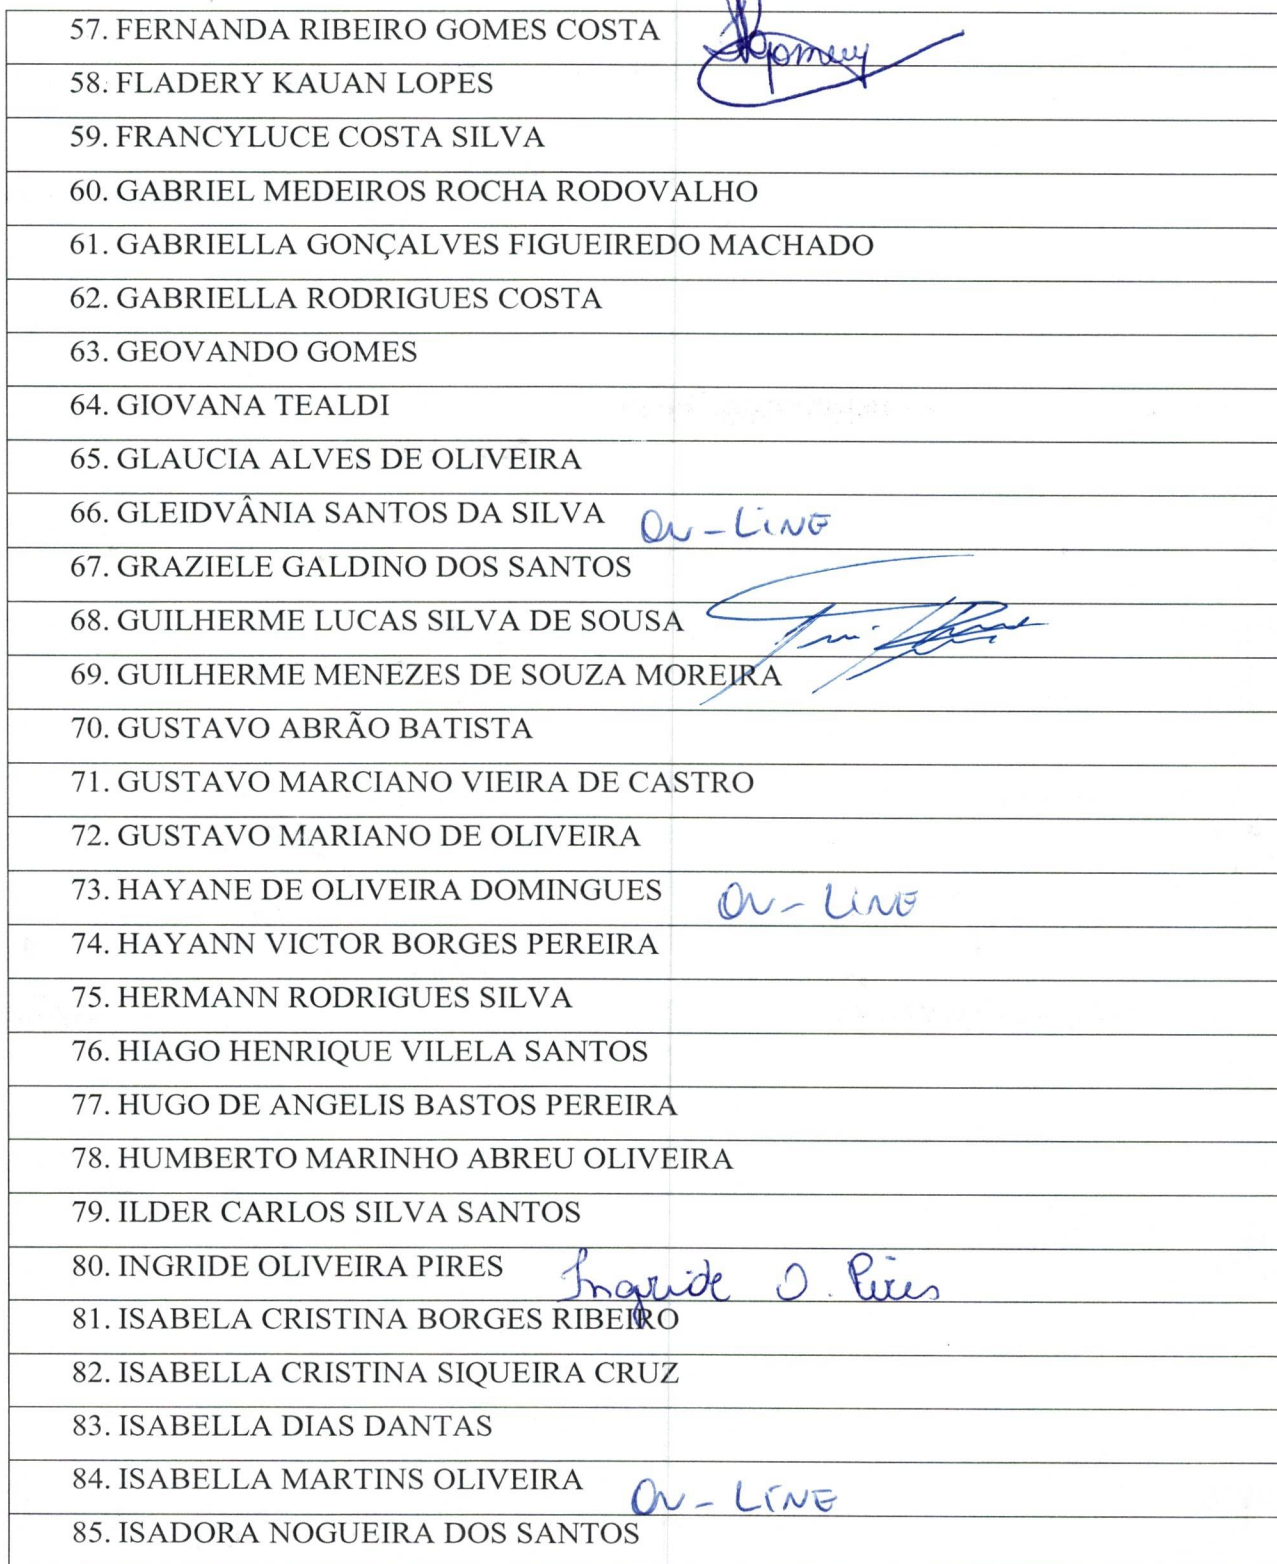 57. FERNANDA RIBEIRO GOMES COSTA
58. FLADERY KAUAN LOPES
59. FRANCYLUCE COSTA SILVA
60. GABRIEL MEDEIROS ROCHA RODOVALHO
61. GABRIELLA GONÇALVES FIGUEIREDO MACHADO
62. GABRIELLA RODRIGUES COSTA
63. GEOVANDO GOMES
64. GIOVANA TEALDI
65. GLAUCIA ALVES DE OLIVEIRA
66. GLEIDVÂNIA SANTOS DA SILVA ON-LINE
67. GRAZIELE GALDINO DOS SANTOS
68. GUILHERME LUCAS SILVA DE SOUSA
69. GUILHERME MENEZES DE SOUZA MOREIRA
70. GUSTAVO ABRÃO BATISTA
71. GUSTAVO MARCIANO VIEIRA DE CASTRO
72. GUSTAVO MARIANO DE OLIVEIRA
73. HAYANE DE OLIVEIRA DOMINGUES ON-LINE
74. HAYANN VICTOR BORGES PEREIRA
75. HERMANN RODRIGUES SILVA
76. HIAGO HENRIQUE VILELA SANTOS
77. HUGO DE ANGELIS BASTOS PEREIRA
78. HUMBERTO MARINHO ABREU OLIVEIRA
79. ILDER CARLOS SILVA SANTOS
80. INGRIDE OLIVEIRA PIRES Ingride O. Pires
81. ISABELA CRISTINA BORGES RIBEIRO
82. ISABELLA CRISTINA SIQUEIRA CRUZ
83. ISABELLA DIAS DANTAS
84. ISABELLA MARTINS OLIVEIRA ON-LINE
85. ISADORA NOGUEIRA DOS SANTOS